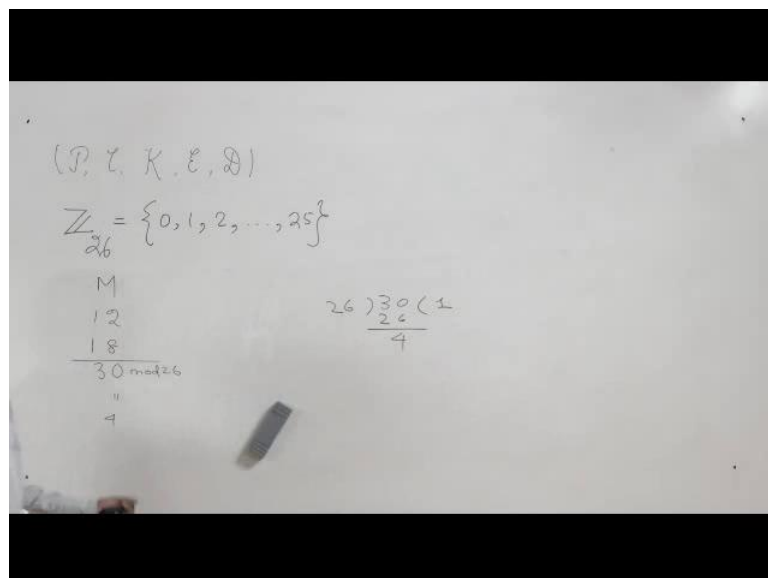 (P, C, K, E, D)
ℤ₂₆ = {0, 1, 2, ..., 25}
M
12
18
30 mod 26
"
4
26 ) 30 ( 1
26
4